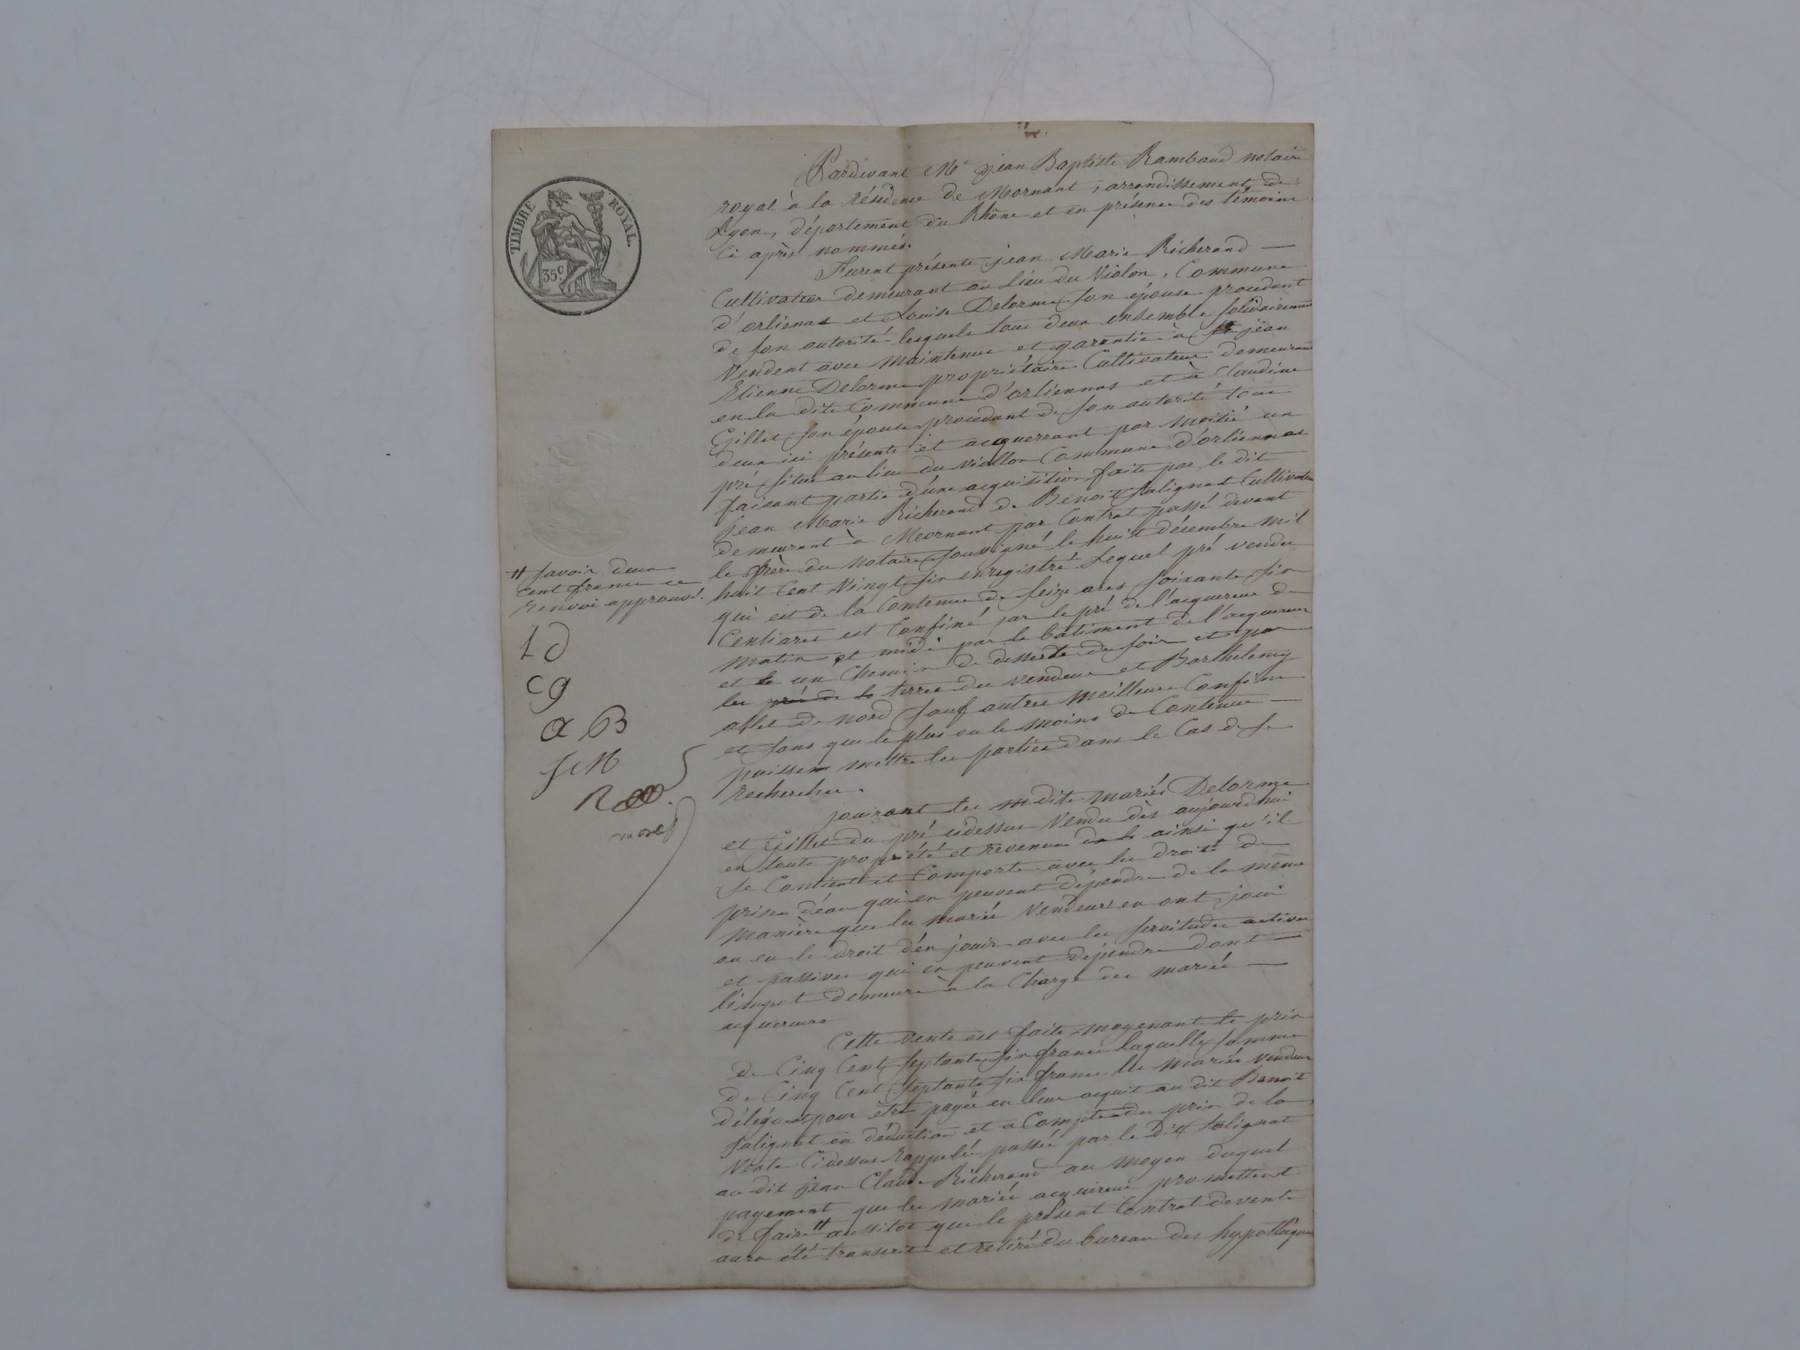 TIMBRE ROYAL.
35c
Pardevant Me jean Baptiste Rambaud notaire
royal à la résidence de Mornant, arrondissement de
Lyon, département du Rhône et en présence des témoins
ci après nommés.
Furent présents jean Marie Richerand
Cultivateur demeurant au lieu du Violon, Commune
d'orlienas et Louise Delorme son épouse procédant
de son autorité lesquels tous deux ensemble solidairement
Vendent avec maintenue et garantie à jean
Etienne Delorme propriétaire Cultivateur demeurant
en la dite Commune d'orliennas et à Claudine
Gillet son épouse procédant de son autorité tous
deux ici présents et acquerrant par moitié un
pré situé au lieu du Viollon Commune d'orliennas
faisant partie d'une acquisition faite par le dit
jean Marie Richerand de Benoit Salignat Cultivateur
demeurant à Mornant par Contrat passé devant
le frère du Notaire soussigné le huit décembre mil
huit Cent Vingt six enregistré Lequel pré vendu
qui est de la Contenue de seize ares soixante six
Centiares est Confiné par le pré de l'acquereur de
matin et midi par le batiment de l'acquereur
et un Chemin de desserte de soir et par
les terres du vendeur et Barthelemy
de nord sauf autres meilleurs Confins
et sans que le plus ou le moins de Contenue
puissent mettre les parties dans le Cas de se
rechercher.
jouiront les susdits mariés Delorme
et Gillet du pré cidessus Vendu dès aujourd'hui
en toute propriété et revenus ainsi qu'il
se Contient et Comporte avec les droits de
prises d'eau qui en peuvent dépendre de la même
manière que les mariés Vendeurs en ont joui
ou eu le droit d'en jouir avec les servitudes actives
et passives qui en peuvent dépendre dont
l'impot demeure à la Charge des mariés
acquereurs
Cette vente est faite moyenant le prix
de Cinq Cent septante six francs laquelle somme
de Cinq Cent septante six francs les mariés vendeurs
délèguent pour être payée en leur acquit au dit Benoit
Salignat en déduction et à Compte du prix de la
Vente Cidessus rappelée passée par le dit Salignat
au dit jean Claude Richerand au moyen duquel
payement que les mariés acquereurs promettent
de faire # aussitot que le présent Contrat de vente
aura été transcrit et retiré du bureau des hypothèques
# savoir deux
cent francs ce
renvoi approuvé.
cg
a B